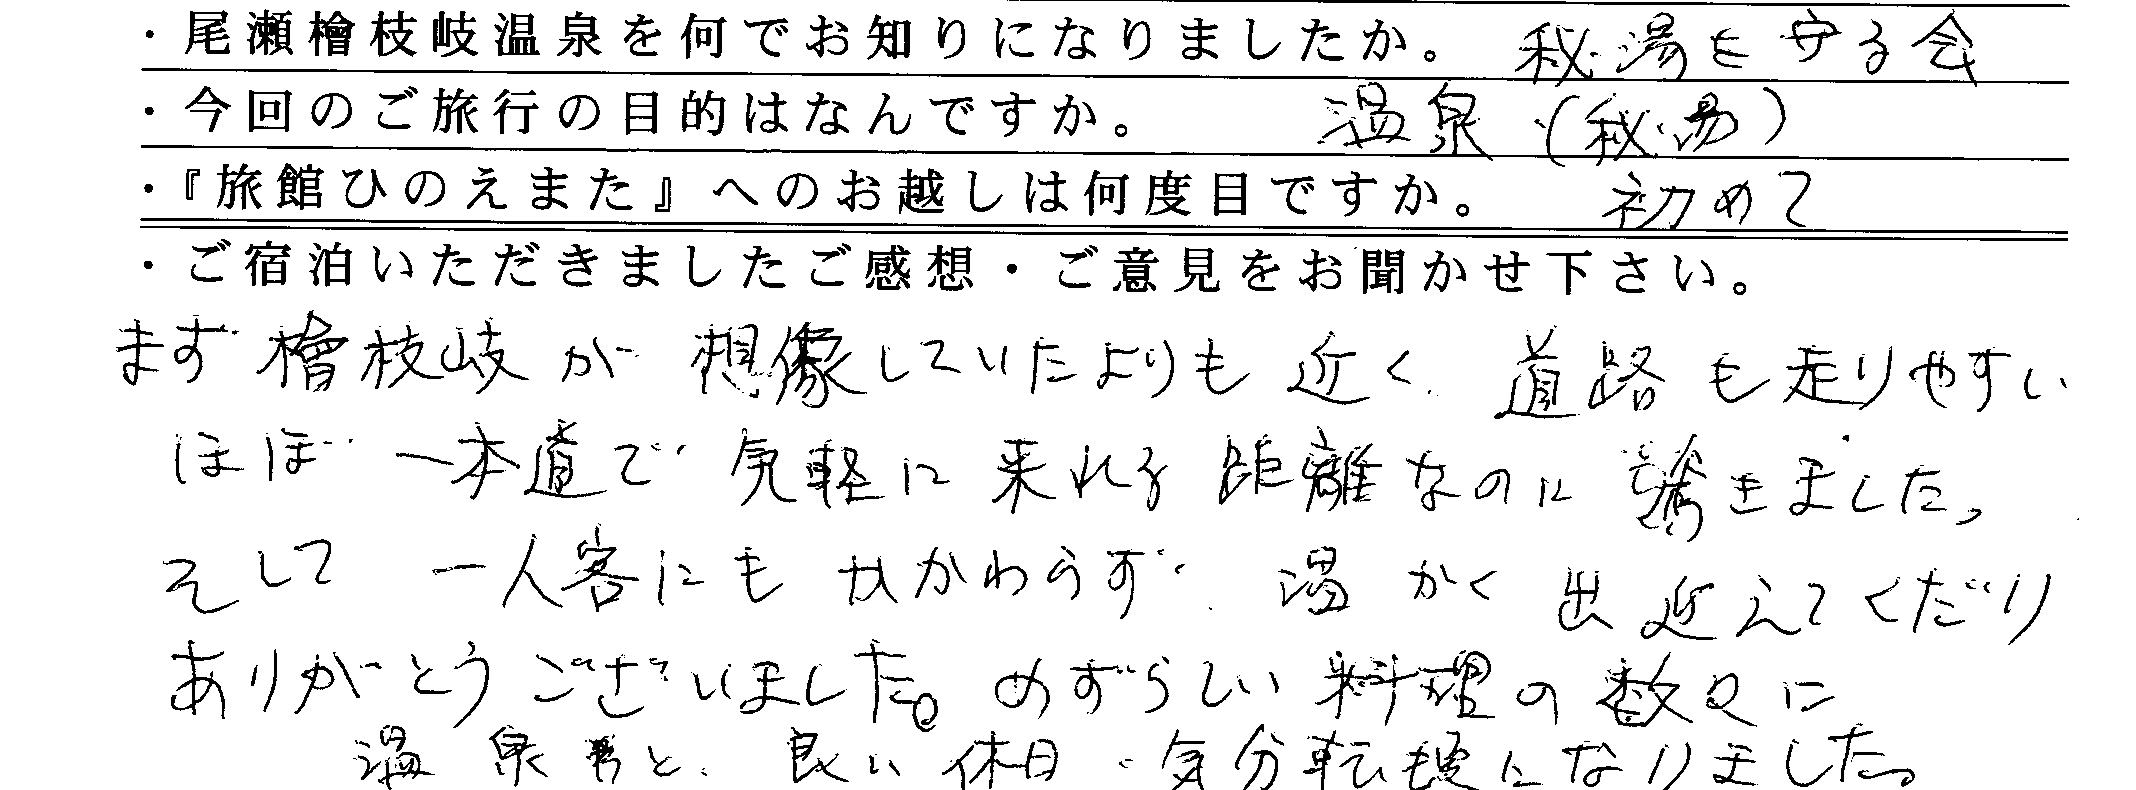 ・尾瀬檜枝岐温泉を何でお知りになりましたか。 秘湯を守る会
・今回のご旅行の目的はなんですか。 温泉(秘湯)
・『旅館ひのえまた』へのお越しは何度目ですか。 初めて
・ご宿泊いただきましたご感想・ご意見をお聞かせ下さい。
まず 檜枝岐が 想像していたよりも 近く、道路も走りやすい
ほぼ 一本道で 気軽に 来れる 距離なのに 驚きました、
そして 一人客にも かかわらず、温かく 出迎えてくだり
ありがとうございました。めずらしい 料理の数々に
温泉と、良い休日・気分転換になりました。